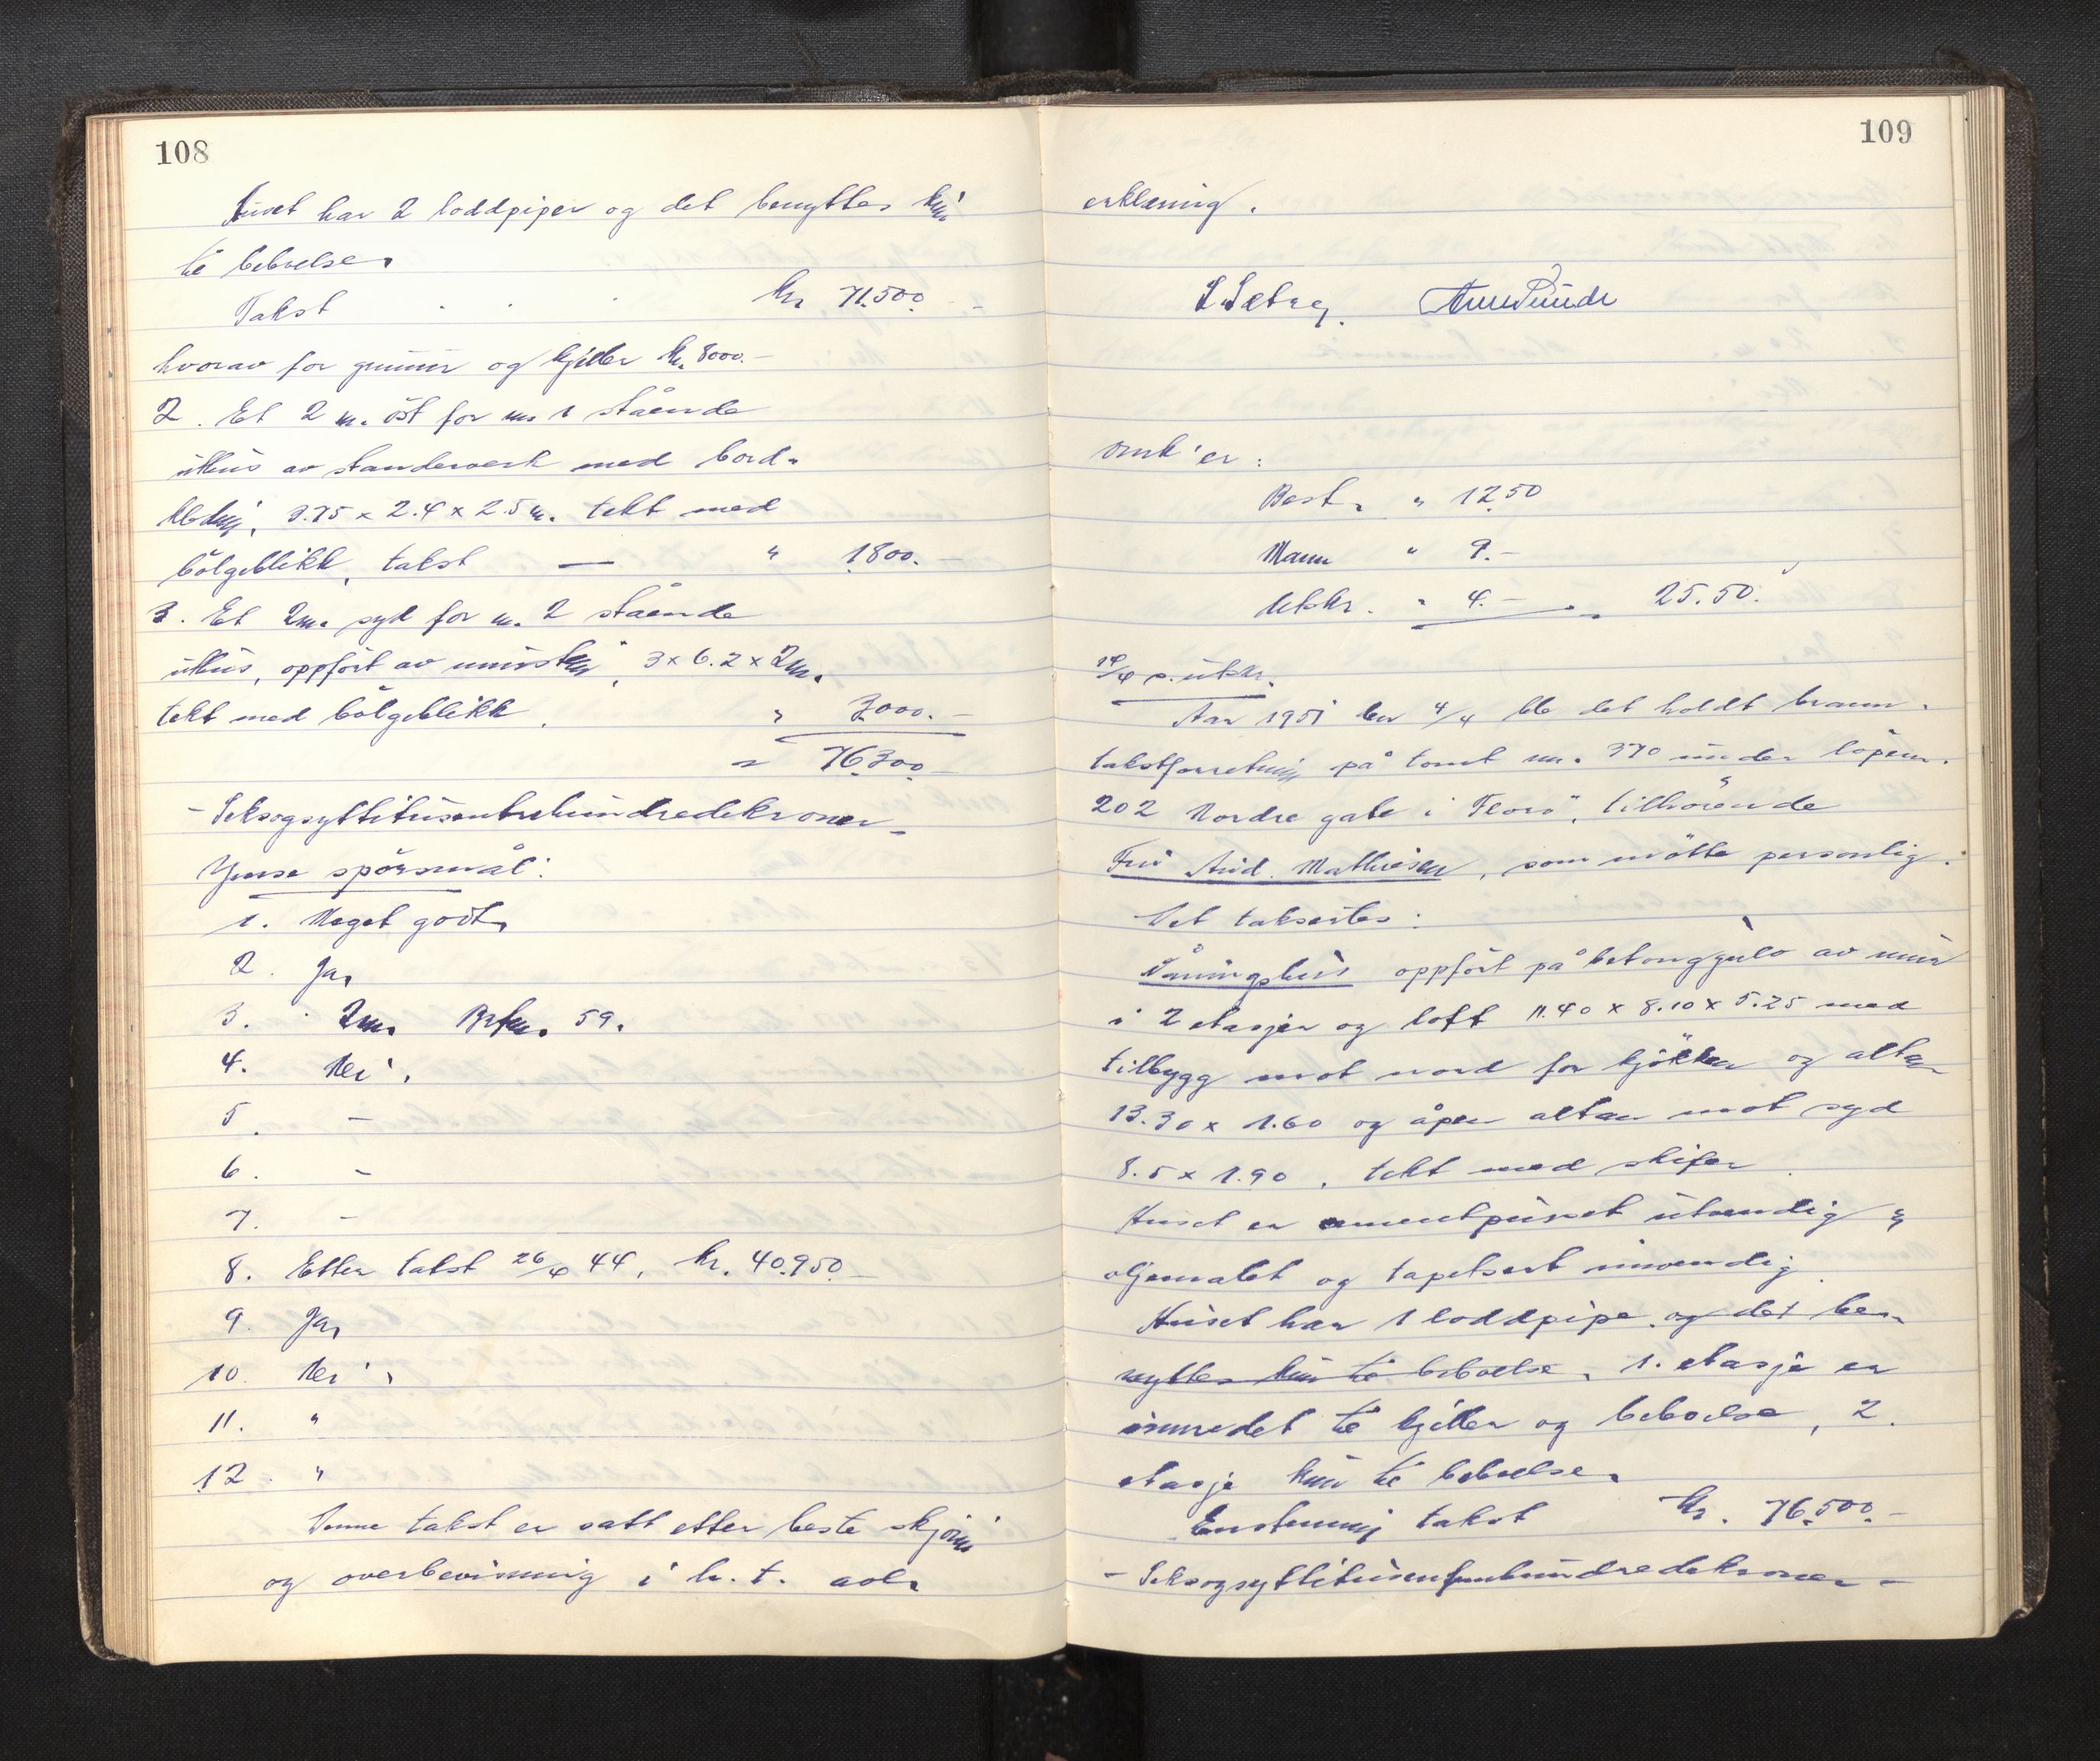 108
Huset har 2 loddpiper og det benyttes kun
til beboelse.
Takst . . . kr. 71.500.-
hvorav for grunnmur og kjeller kr. 8000.-
2. Et 2 m. öst for nr. 1 stående
uthus av standerverk med bord-
kledning, 3.75 x 2.4 x 2.5 m. tekt med
bölgeblikk, takst — " 1800.-
3. Et 2m. syd for nr. 2 stående
uthus, oppfört av murstein, 3 x 6.2 x 2m.
tekt med bölgeblikk. " 3000.-
" 76300.-
- Seksogsyttitusentrehundredekroner -
Yense spörsmål:
1. Meget godt.
2. Ja.
3. 2m. Brtm. 59.
4. Nei.
5. -
6. -
7. -
8. Etter takst 26/4 44, kr. 40.950.-
9. Ja.
10. Nei.
11. "
12. "
Denne takst er satt etter beste skjönn
og overbevisning i h.t. avl.
109
erklæring.
S. Sætrey.
omk'er:
Best. " 12.50
Mann " 9.-
Utskr. " 4.- " 25.50.
14/4 s. utskr.
Aar 1951 den 4/4 ble det holdt brann-
takstforretning på tomt nr. 370 under löpenr.
202 Nordre gate i Florö, tilhörende
Fru And. Mathiesen, som mötte personlig.
Det takseres:
Våningshus oppfört på betonggulv av mur
i 2 etasjer og loft 11.40 x 8.10 x 5.25 med
tilbygg mot nord for kjökken og altan
13.30 x 1.60 og åpen altan mot syd
8.5 x 1.90, tekt med skifer.
Huset er sementpusset utvendig og
oljemalet og tapetsert innvendig.
Huset har 1 loddpipe. og det be-
nyttes kun til beboelse. 1. etasje er
innredet til kjeller og beboelse, 2.
etasje kun til beboelse.
Enstemmig takst kr. 76.500.-
- Seksogsyttitusenfemhundredekroner -